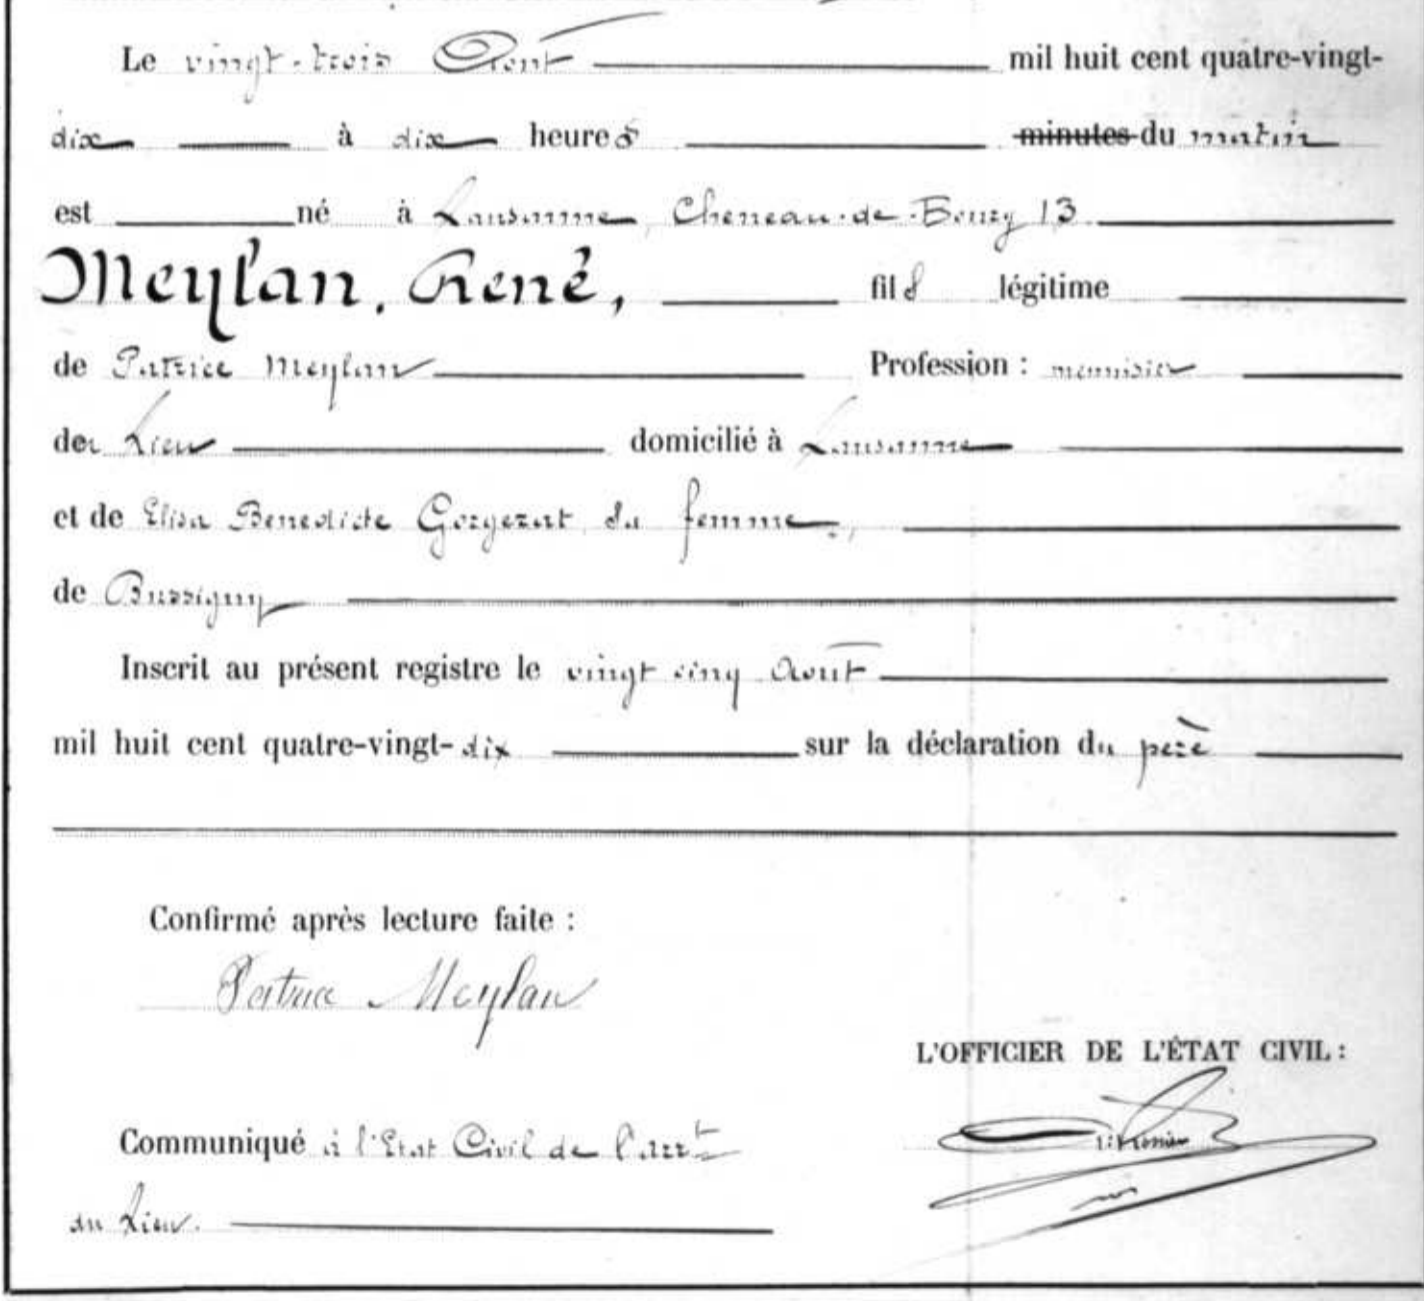 Le vingt-trois Août mil huit cent quatre-vingt-
dix à dix heures minutes du matin
est né à Lausanne, Cheneau-de-Bourg 13
Meylan, René, fils légitime
de Patrice Meylan Profession : menuisier
du Lieu domicilié à Lausanne
et de Elisa Benedicte Gorgerat, sa femme,
de Bussigny
Inscrit au présent registre le vingt cinq Août
mil huit cent quatre-vingt-dix sur la déclaration du père
Confirmé après lecture faite :
Patrice Meylan
L'OFFICIER DE L'ÉTAT CIVIL :
Communiqué à l'Etat Civil de l'arrt
du Lieu.